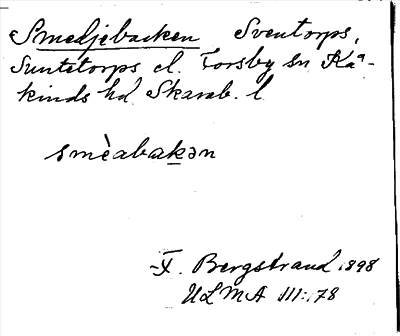 Smedjebacken Sventorps,
Suntetorps el. Forsby sn Kå-
kinds hd Skarab. l.
smèabakən
F. Bergstrand 1898
ULMA 111:178